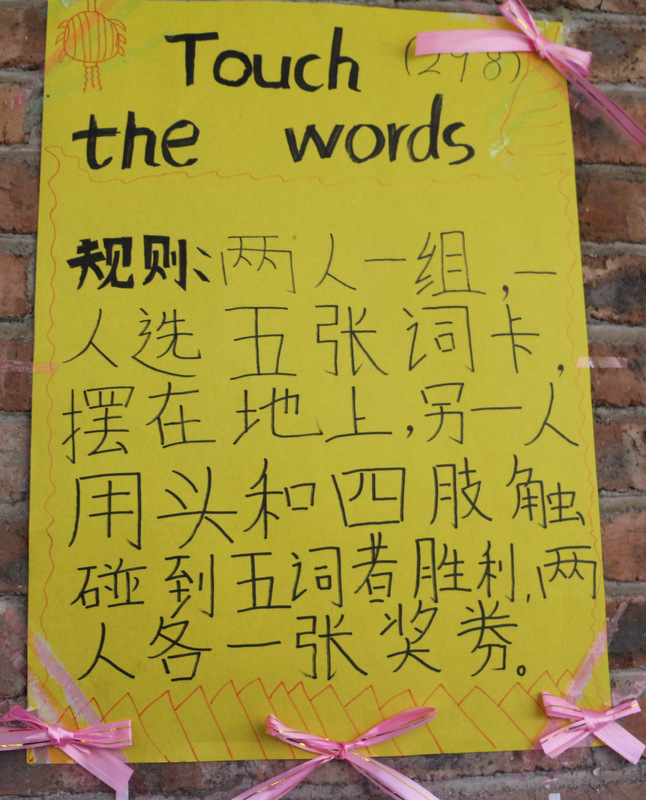 Touch (298)
the words
规则:两人一组,一
人选五张词卡,
摆在地上,另一人
用头和四肢触
碰到五词者胜利,两
人各一张奖券。